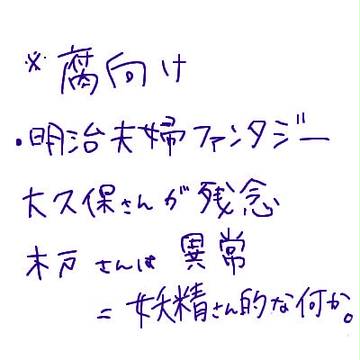 ※腐向け
・明治夫婦ファンタジー
大久保さんが残念
木戸さんは異常
=妖精さん的な何か。